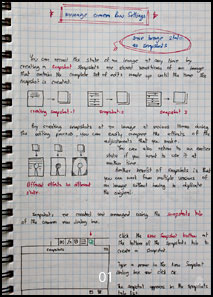 manage camera Raw Settings
Save image states
as snapshots
You can record the state of an image at any time by
creating a snapshot. Snapshots are stored renditions of an image
that contain the complete set of edits made up until the time the
snapshot is created.
creating snapshot 1 snapshot 2 snapshot 3
By creating snapshots of an image at various times during
the editing process, you can easily compare the effects of the
adjustments that you make.
You can also return to an earlier
state if you want to use it at
another time.
Another benefit of snapshots is that
you can work from multiple versions of
an image without having to duplicate
the original.
Different effects in different
state.
Snapshots are created and managed using the snapshots tab
of the camera raw dialog box.
Click the new snapshot button at
the bottom of the snapshots tab to
create a snapshot.
Snapshots
Type a name in the new snapshot
dialog box and click OK.
The snapshot appears in the snapshots
tab list.
01